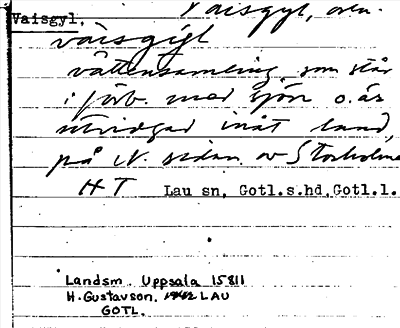 Vaisgyl.
Vaisgyl, även.
väisgigl
vattensamling, som står
i förb. med sjön o. är
utvidgad inåt land,
på N. sidan av Storholmen
HT Lau sn, Gotl.s.hd.Gotl.l.
Landsm. Uppsala 15811
H. Gustavson. 1942 LAU
GOTL.